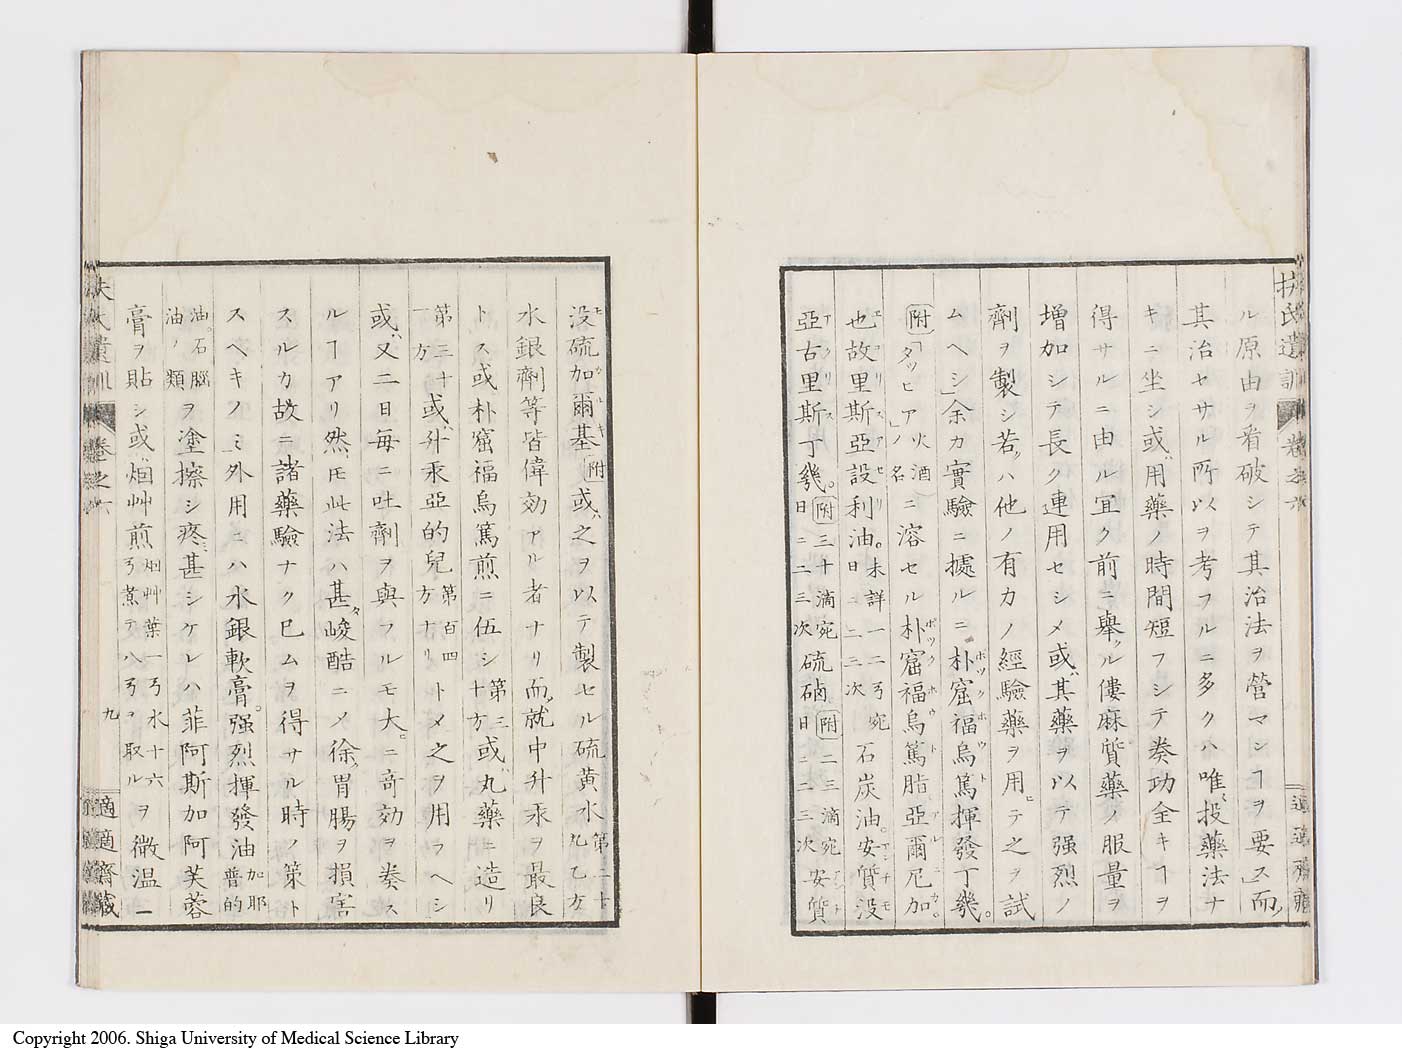 扶氏遺訓 卷之六
ル原由ヲ看破シテ其治法ヲ營マンヿヲ要ス而ノ
其治セサル所以ヲ考フルニ多クハ唯投藥法ナ
キニ坐シ或ハ用藥ノ時間短フシテ奏功全キヿヲ
得サルニ由ル冝ク前ニ擧ル僂麻質藥ノ服量ヲ
増加シテ長ク連用セシメ或ハ其藥ヲ以テ强烈ノ
劑ヲ製シ若クハ他ノ有力ノ經驗藥ヲ用ヒテ之ヲ試
ムヘシ余カ實驗ニ據ルニ朴窟福烏篤揮發丁幾。
附「タッヒア」ノ名火酒ニ溶セル朴窟福烏篤脂亞爾尼加。
也故里斯亞設利油。未詳一二弓宛日ニ二三次石炭油。安質没
亞古里斯丁幾。附三十滴宛日ニ二三次硫硇附二三滴宛日ニ二三次安質
没硫加爾基附或ハ之ヲ以テ製セル硫黄水第二十九乙方
水銀劑等皆偉効アル者ナリ而ノ就中升汞ヲ最良
トス或ハ朴窟福烏篤煎ニ伍シ第三十方或ハ丸藥ニ造リ
第三十一方或ハ升汞亞的兒第百四十方ナリトメ之ヲ用ウヘシ
或ハ又二日毎ニ吐劑ヲ與フルモ大ニ竒効ヲ奏ス
ルヿアリ然𪜈此法ハ甚タ峻酷ニノ徐ロニ胃腸ヲ損害
スルカ故ニ諸藥驗ナク已ムヲ得サル時ノ策ト
スヘキノミ外用ニハ水銀軟膏。强烈揮發油加耶普的
油。石腦油ノ類ヲ塗擦シ疼ミ甚シケレハ菲阿斯加阿芙蓉
膏ヲ貼シ或ハ烟艸煎烟艸葉一弓水十六弓煮テ八弓ヲ取ルヲ微温ニ
扶氏遺訓 卷之六
九
適適齋藏